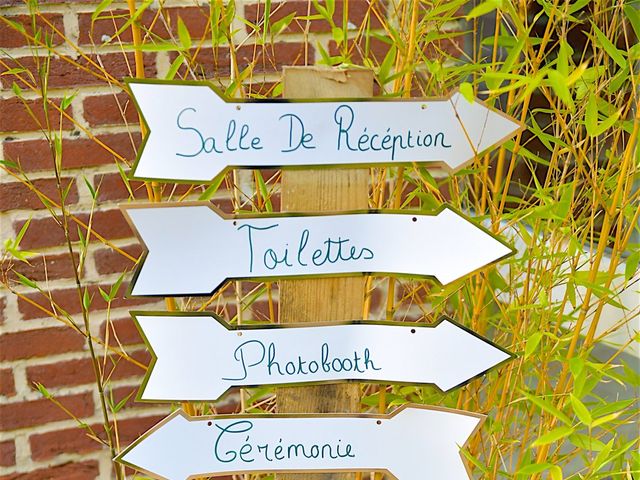 Salle De Récéption
Toilettes
Photobooth
Cérémonie